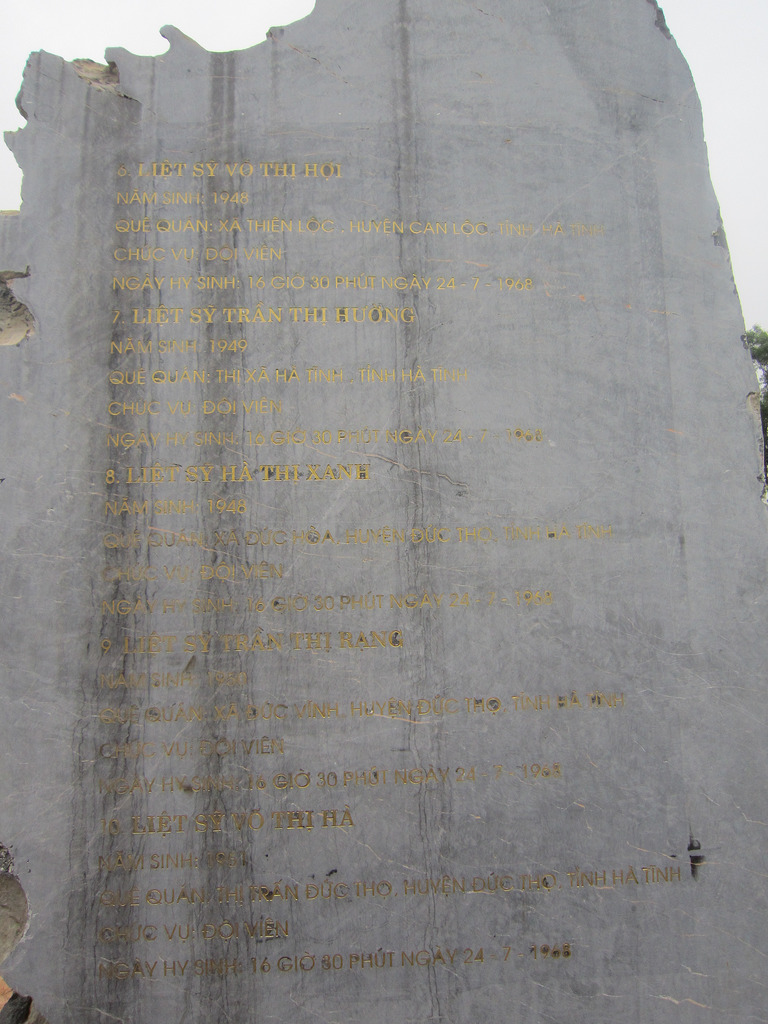 6. LIỆT SỸ VÕ THỊ HỢI
NĂM SINH: 1948
QUÊ QUÁN: XÃ THIÊN LỘC , HUYỆN CAN LỘC, TỈNH HÀ TĨNH
CHỨC VỤ: ĐỘI VIÊN
NGÀY HY SINH: 16 GIỜ 30 PHÚT NGÀY 24 - 7 - 1968
7. LIỆT SỸ TRẦN THỊ HƯỜNG
NĂM SINH: 1949
QUÊ QUÁN: THỊ XÃ HÀ TĨNH , TỈNH HÀ TĨNH
CHỨC VỤ: ĐỘI VIÊN
NGÀY HY SINH: 16 GIỜ 30 PHÚT NGÀY 24 - 7 - 1968
8. LIỆT SỸ HÀ THỊ XANH
NĂM SINH: 1948
QUÊ QUÁN: XÃ ĐỨC HÒA, HUYỆN ĐỨC THỌ, TỈNH HÀ TĨNH
CHỨC VỤ: ĐỘI VIÊN
NGÀY HY SINH: 16 GIỜ 30 PHÚT NGÀY 24 - 7 - 1968
9. LIỆT SỸ TRẦN THỊ RẠNG
NĂM SINH: 1950
QUÊ QUÁN: XÃ ĐỨC VĨNH, HUYỆN ĐỨC THỌ, TỈNH HÀ TĨNH
CHỨC VỤ: ĐỘI VIÊN
NGÀY HY SINH: 16 GIỜ 30 PHÚT NGÀY 24 - 7 - 1968
10. LIỆT SỸ VÕ THỊ HÀ
NĂM SINH: 1951
QUÊ QUÁN: THỊ TRẤN ĐỨC THỌ, HUYỆN ĐỨC THỌ, TỈNH HÀ TĨNH
CHỨC VỤ: ĐỘI VIÊN
NGÀY HY SINH: 16 GIỜ 30 PHÚT NGÀY 24 - 7 - 1968